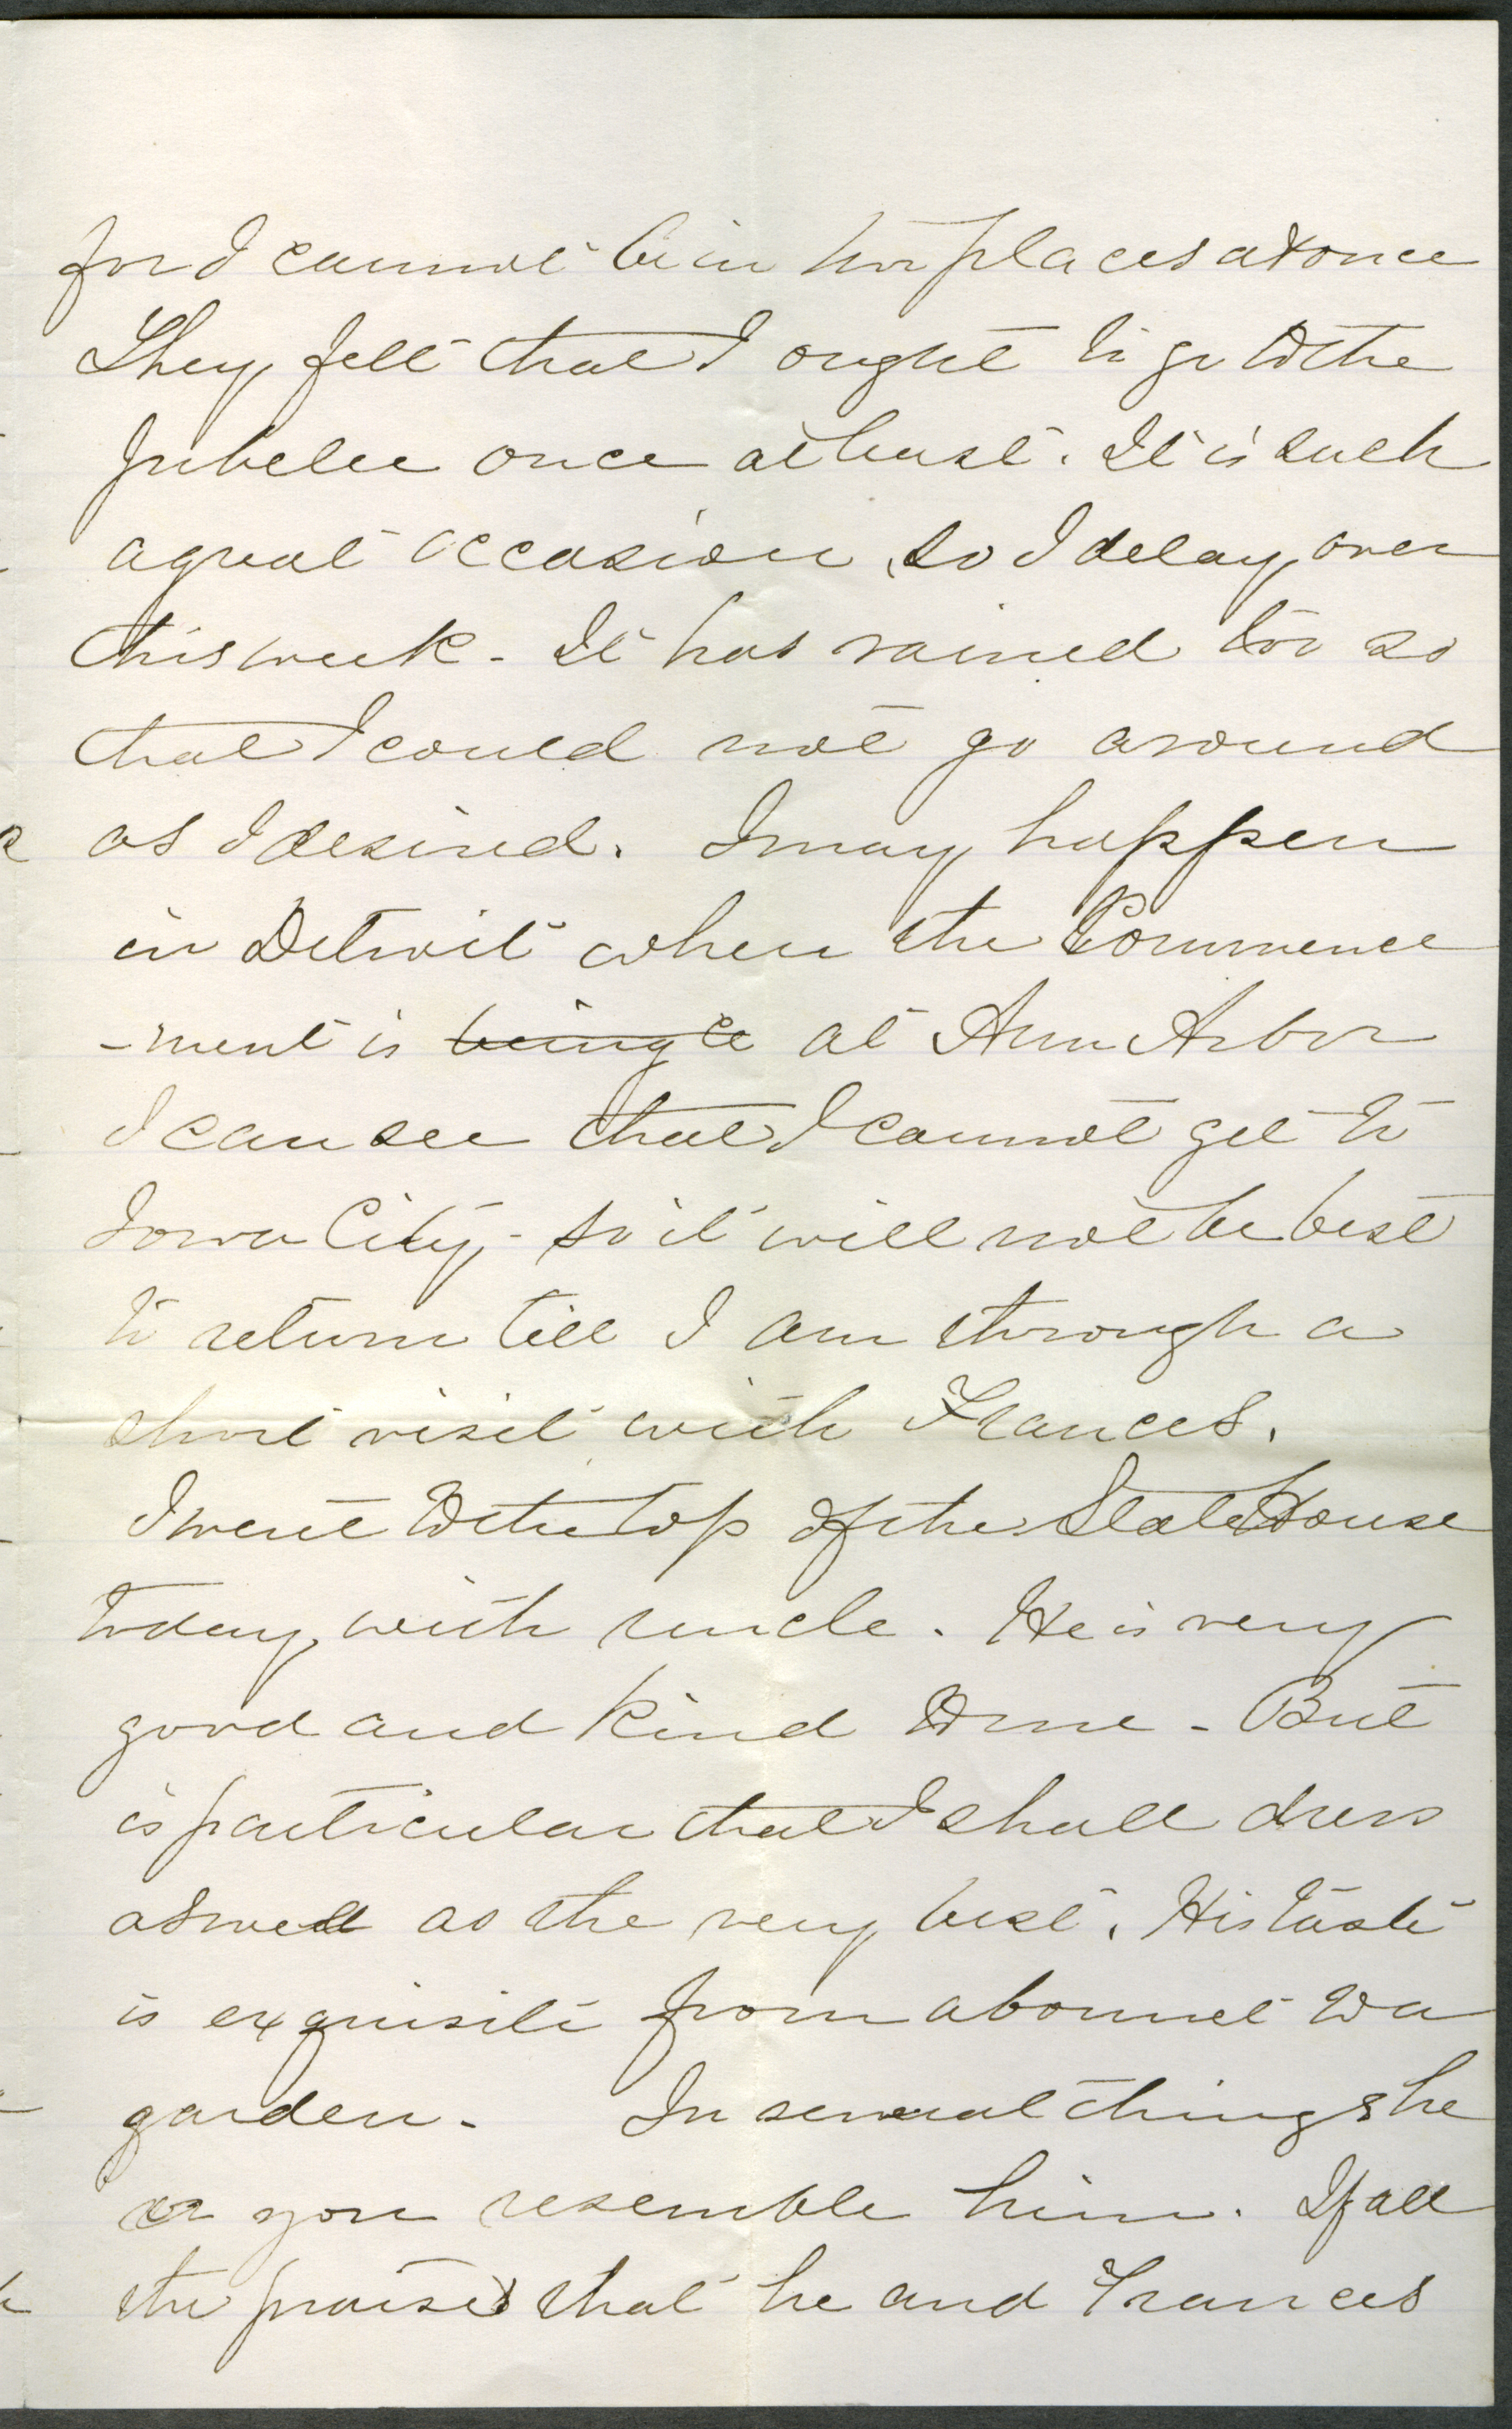 for I cannot be in two places at once
They felt that I ought to go to the
Jubelee once at least. It is such
a great occasion, so I delay over
this week - It has rained too so
that I could not go around
as I desired. I may happen
in Detroit when the Commence
-ment is being at Ann Arbor
I can see that I cannot get to
Iowa City - so it will not be best
to return till I am through a
short visit with Frances.
I went to the top of the State House
today, with uncle. He is very
good and kind to me - But
is particular that I shall dress
as well as the very best. His taste
is exquisite from a bonnet to a
garden - In several things he
or you resemble him. If all
the praises that he and Frances